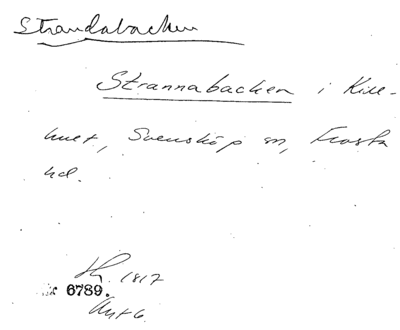 Strandabacken
Strannabacken i Kille-
huset, Svensköp sn, Frosta
hd.
1817
6789.